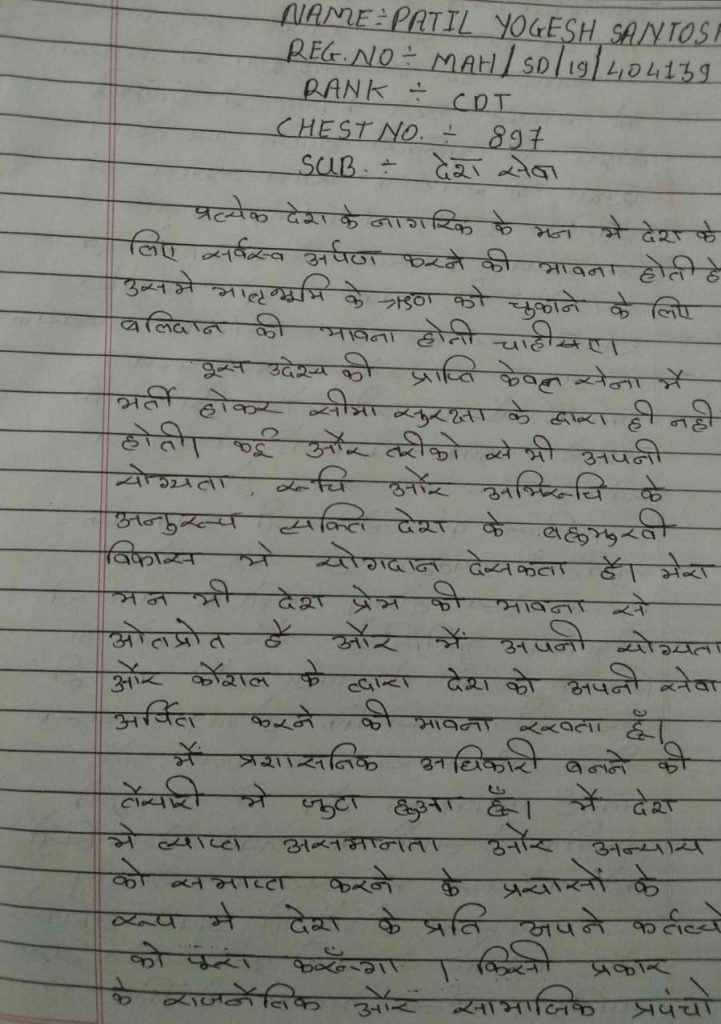 NAME÷PATIL YOGESH SANTOSH
REG.NO ÷ MAH/SD/19/404139
RANK ÷ CDT
CHEST NO. ÷ 897
SUB. ÷ देश सेवा
प्रत्येक देश के नागरिक के मन मे देश के
लिए सर्वस्व अर्पण करने की भावना होती है
उसमे मातृभूमि के ऋण को चुकाने के लिए
बलिदान की भावना होती चाहीए।
इस उदेश्य की प्राप्ति केवल सेना मे
भर्ती होकर सीमा सुरक्षा के द्वारा ही नही
होती। कई और तरीको से भी अपनी
योग्यता, रूचि और अभिरूचि के
अनुरूप व्यक्ति देश के बहुमुखी
विकास मे योगदान देसकता है। मेरा
मन भी देश प्रेम की भावना से
ओतप्रोत है और मैं अपनी योग्यता
और कौशल के द्वारा देश को अपनी सेवा
अर्पित करने की भावना रखता हूँ।
मैं प्रशासनिक अधिकारी बनने की
तैयारी मे जुटा हुआ हूँ। मैं देश
मे व्याप्त असमानता और अन्याय
को समाप्त करने के प्रयासों के
रूप मे देश के प्रति अपने कर्तव्यो
को पूरा करूँगा । किसी प्रकार
के राजनैतिक और सामाजिक प्रपंचो